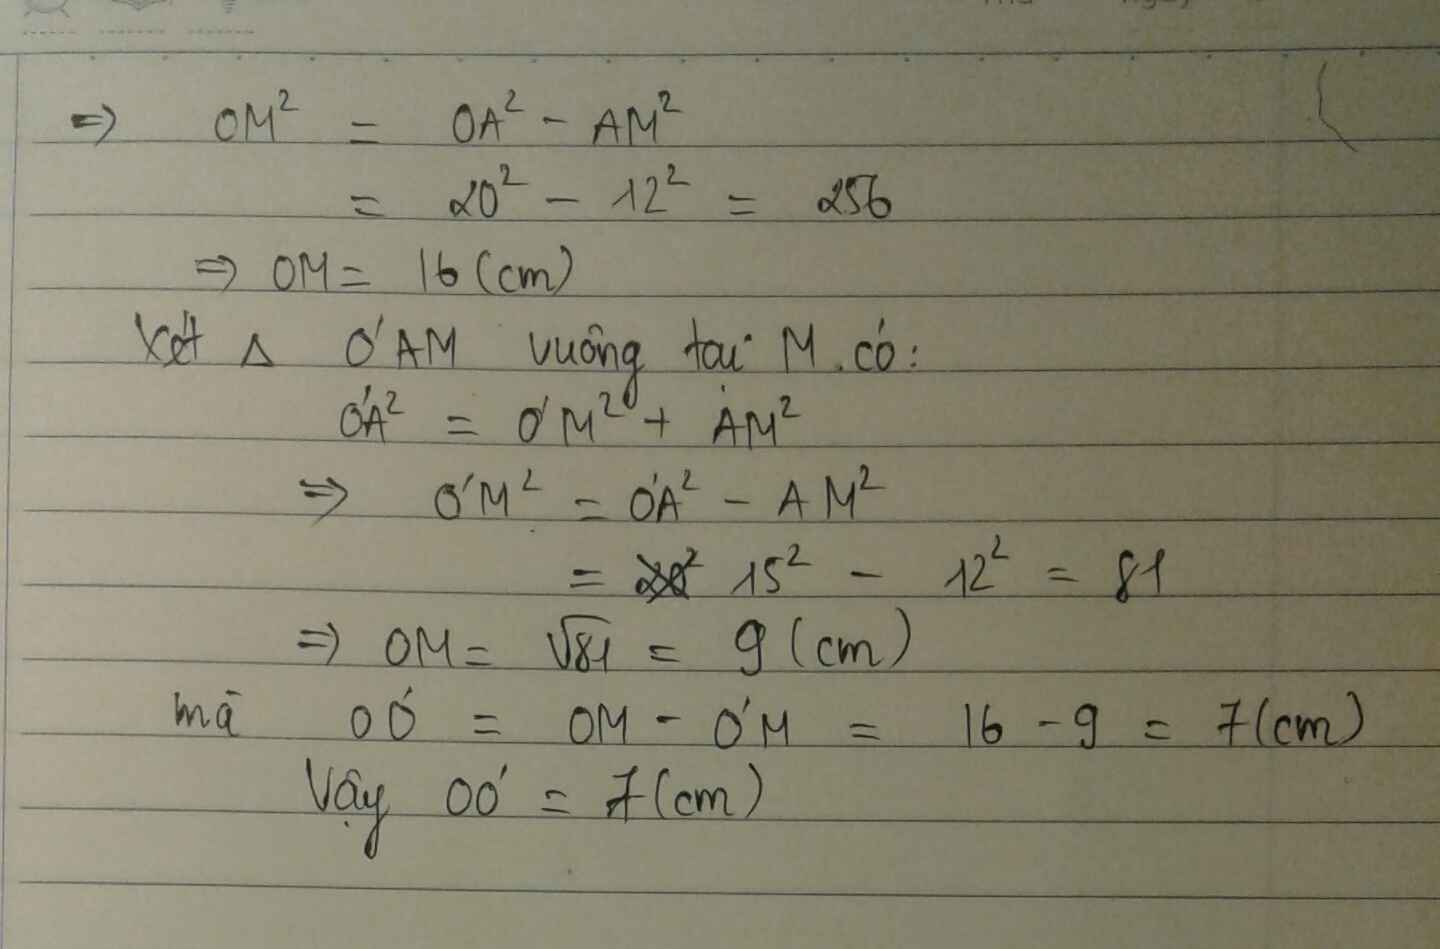 => OM² = OA² - AM²
= 20² - 12² = 256
=> OM = 16 (cm)
Xét Δ O'AM vuông tại M có:
O'A² = O'M² + AM²
=> O'M² = O'A² - AM²
= 15² - 12² = 81
=> OM = √81 = 9 (cm)
mà OO' = OM - O'M = 16 - 9 = 7 (cm)
Vậy OO' = 7 (cm)